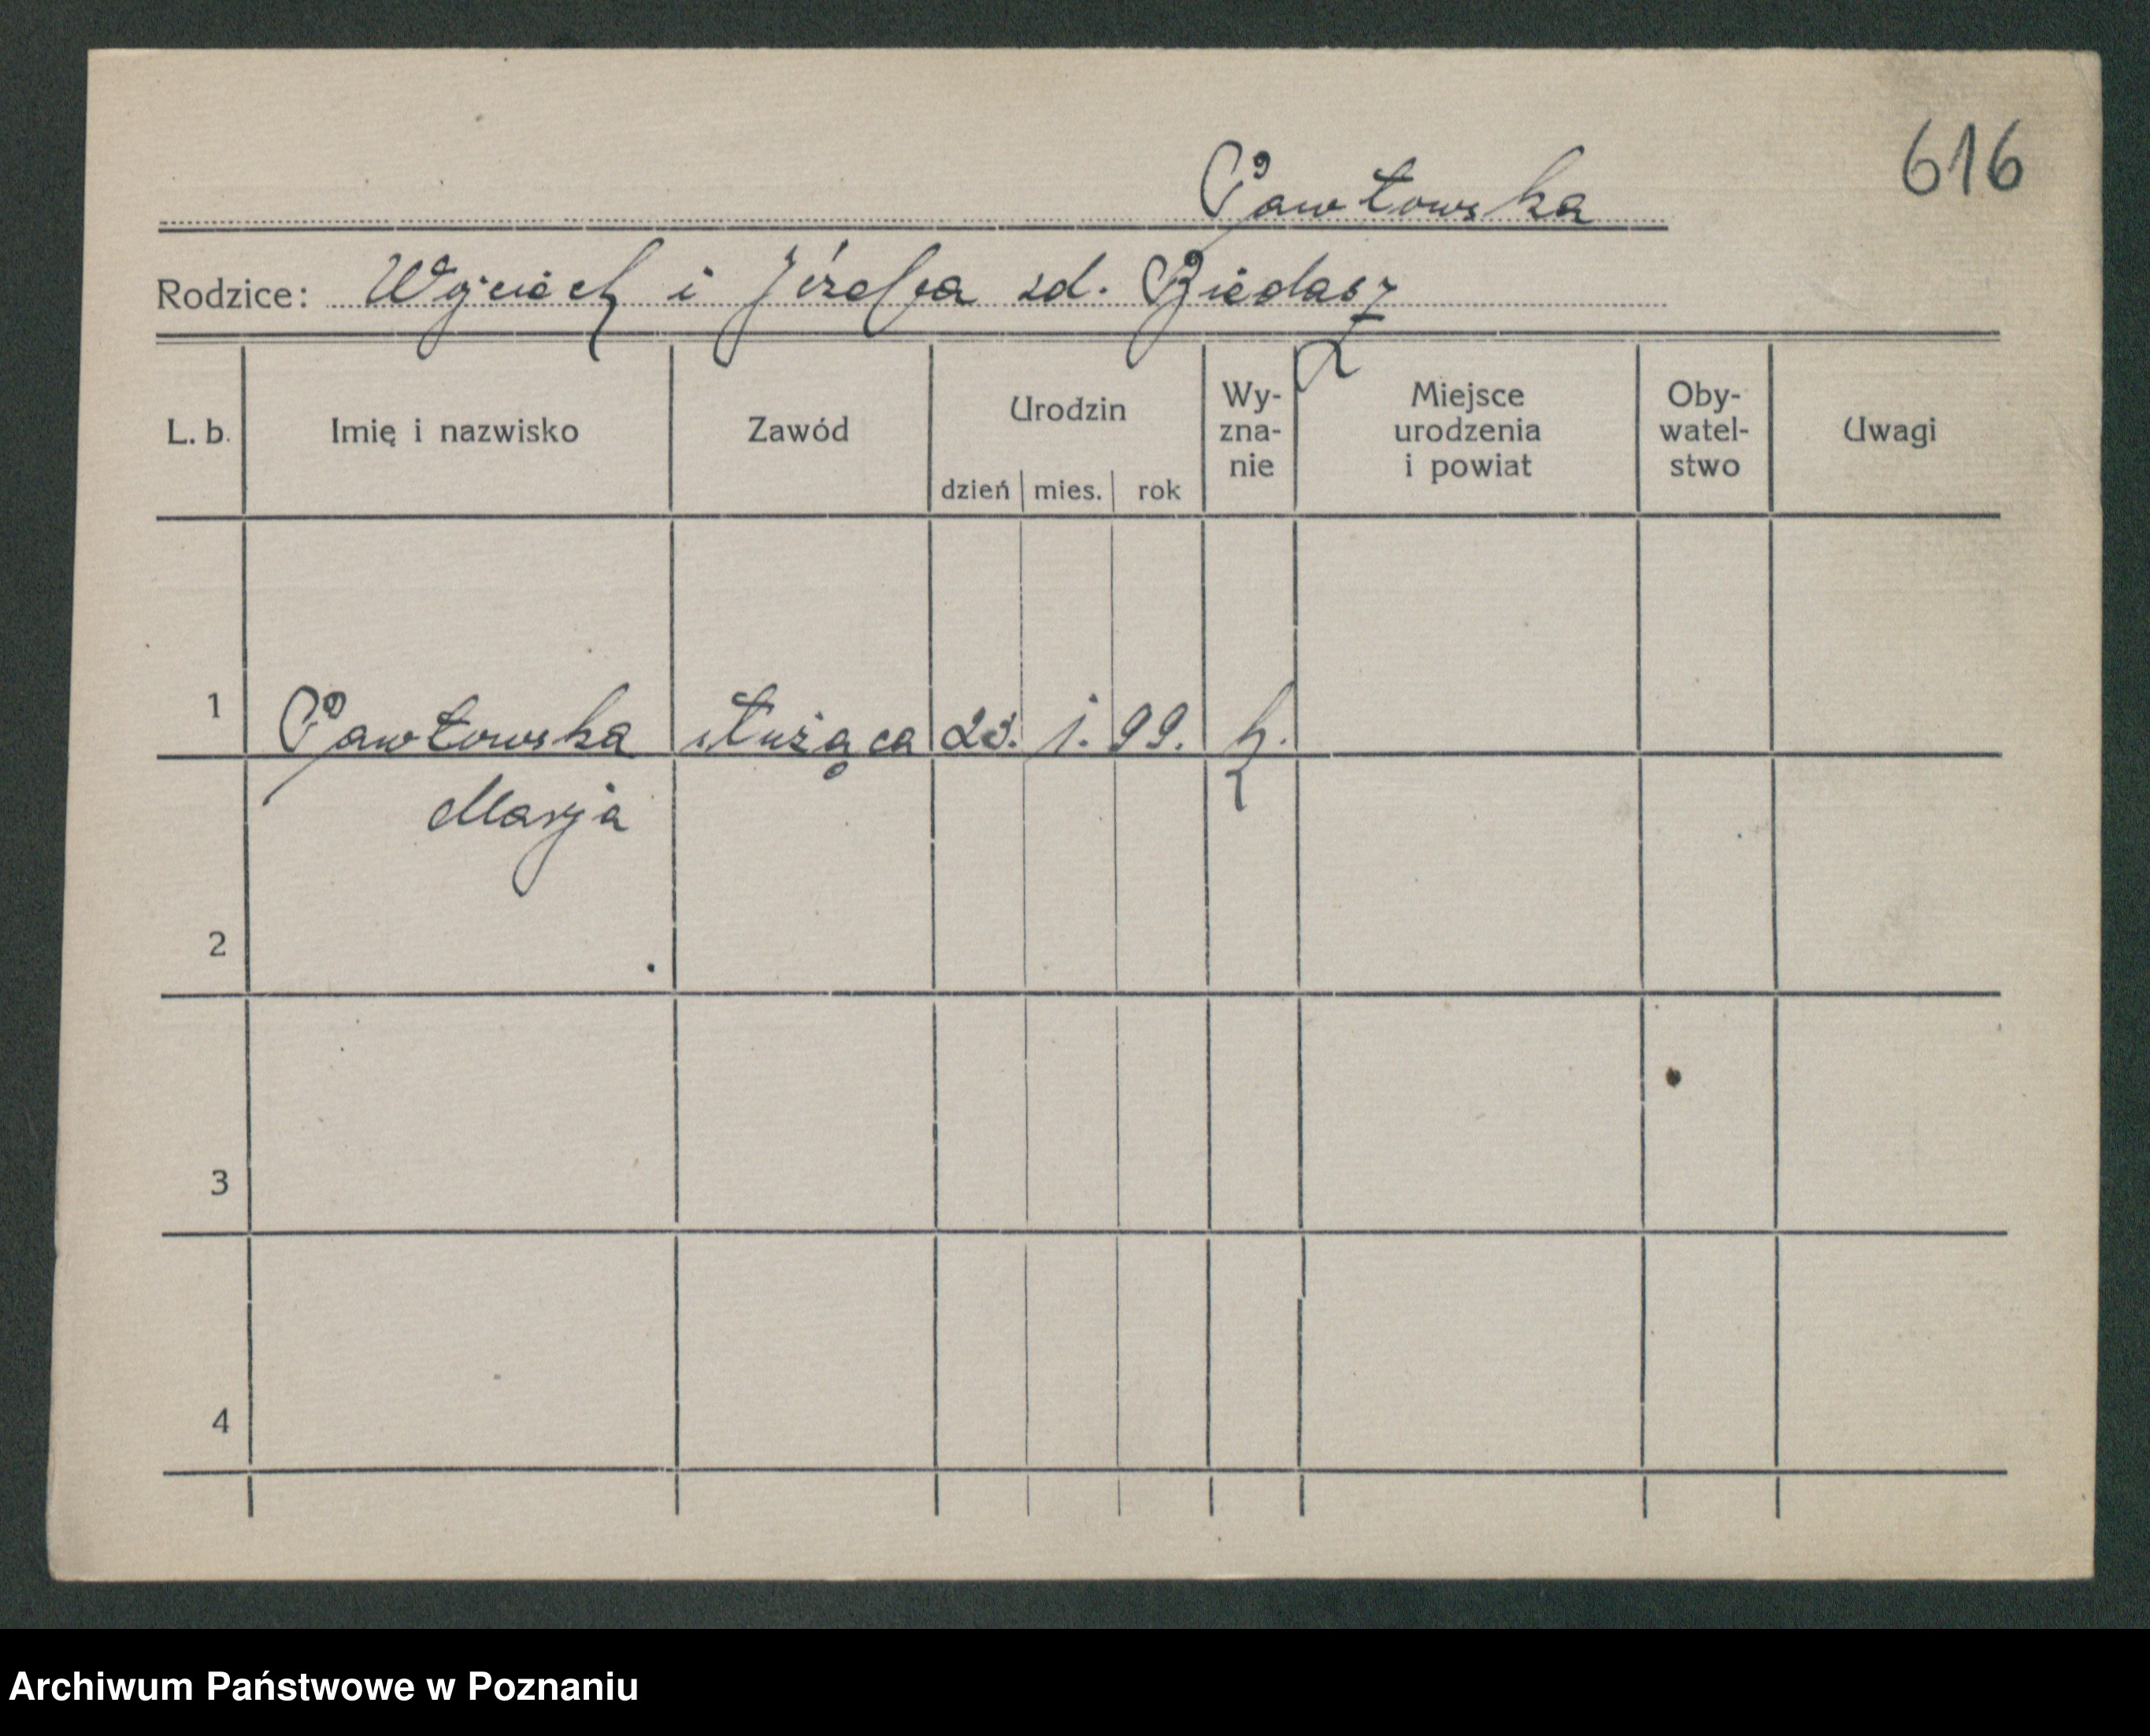 616
Pawłowska
Rodzice: Wojciech i Józefa zd. Biedasz
L. b. Imię i nazwisko Zawód Urodzin dzień mies. rok Wy-zna-nie Miejsce urodzenia i powiat Oby-watel-stwo Uwagi
1 Pawłowska służąca 23. 1. 99. k.
Marja
2
3
4
Archiwum Państwowe w Poznaniu